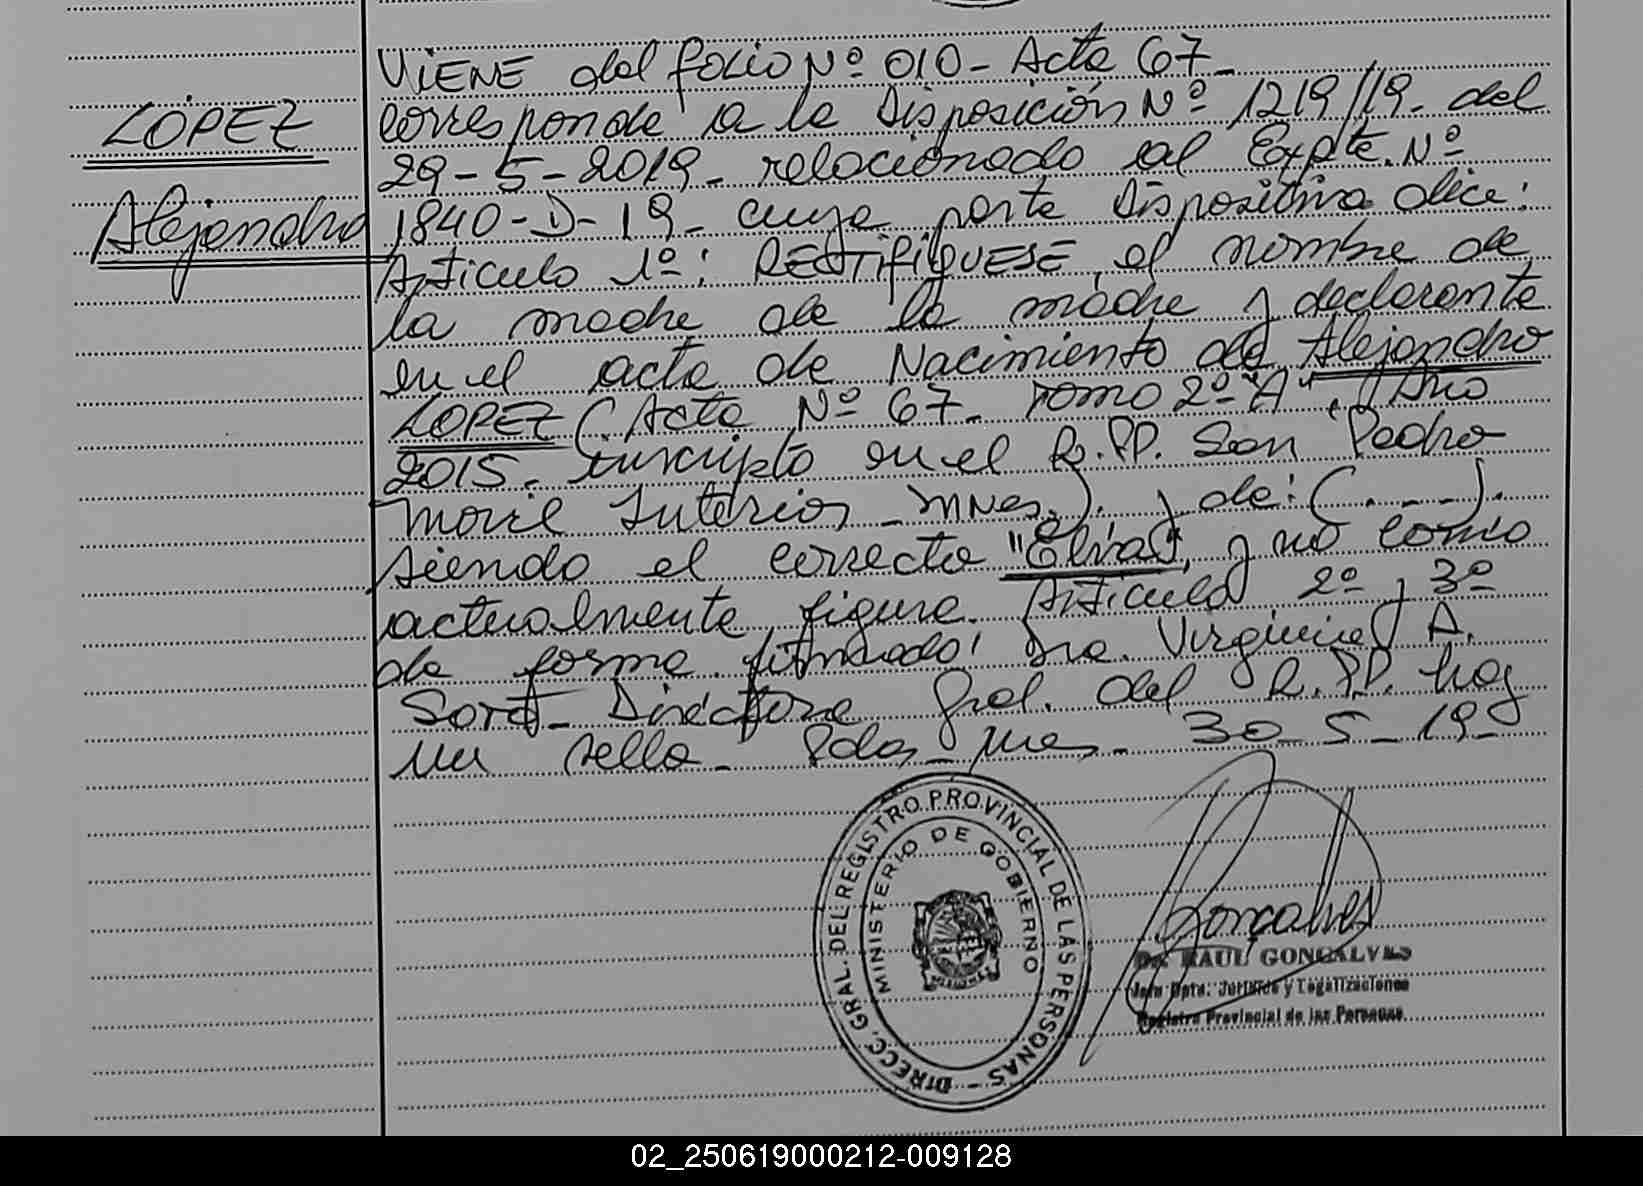 VIENE del folio Nº 010 - Acta 67 -
LÓPEZ
Alejandro
corresponde a la Disposición Nº 1219/19. del
29-5-2019. relacionado al Expte. Nº
1840-D-19. cuya parte Dispositiva dice:
Artículo 1º: RECTIFIQUESE, el nombre de
la madre de la madre y declarante
en el acta de Nacimiento de Alejandro
LOPEZ (Acta Nº 67. Tomo 2º "A", Año
2015. inscripto en el R.PP. San Pedro
Movil Interior - MNes.). y de: (. - - -).
siendo el correcto "Elva", y no como
actualmente figura. Artículo 2º y 3º
de forma. firmado: Dra. Virginia A.
Directora Gral. del R.PP. hay
un sello. Pdas. Mnes. 30-5-19-
DIRECC. GRAL. DEL REGISTRO PROVINCIAL DE LAS PERSONAS -
MINISTERIO DE GOBIERNO
Gonçalves
Dr. RAUL GONCALVES
Jefe Dpto. Jurídico y Legalizaciones
Registro Provincial de las Personas
02_250619000212-009128